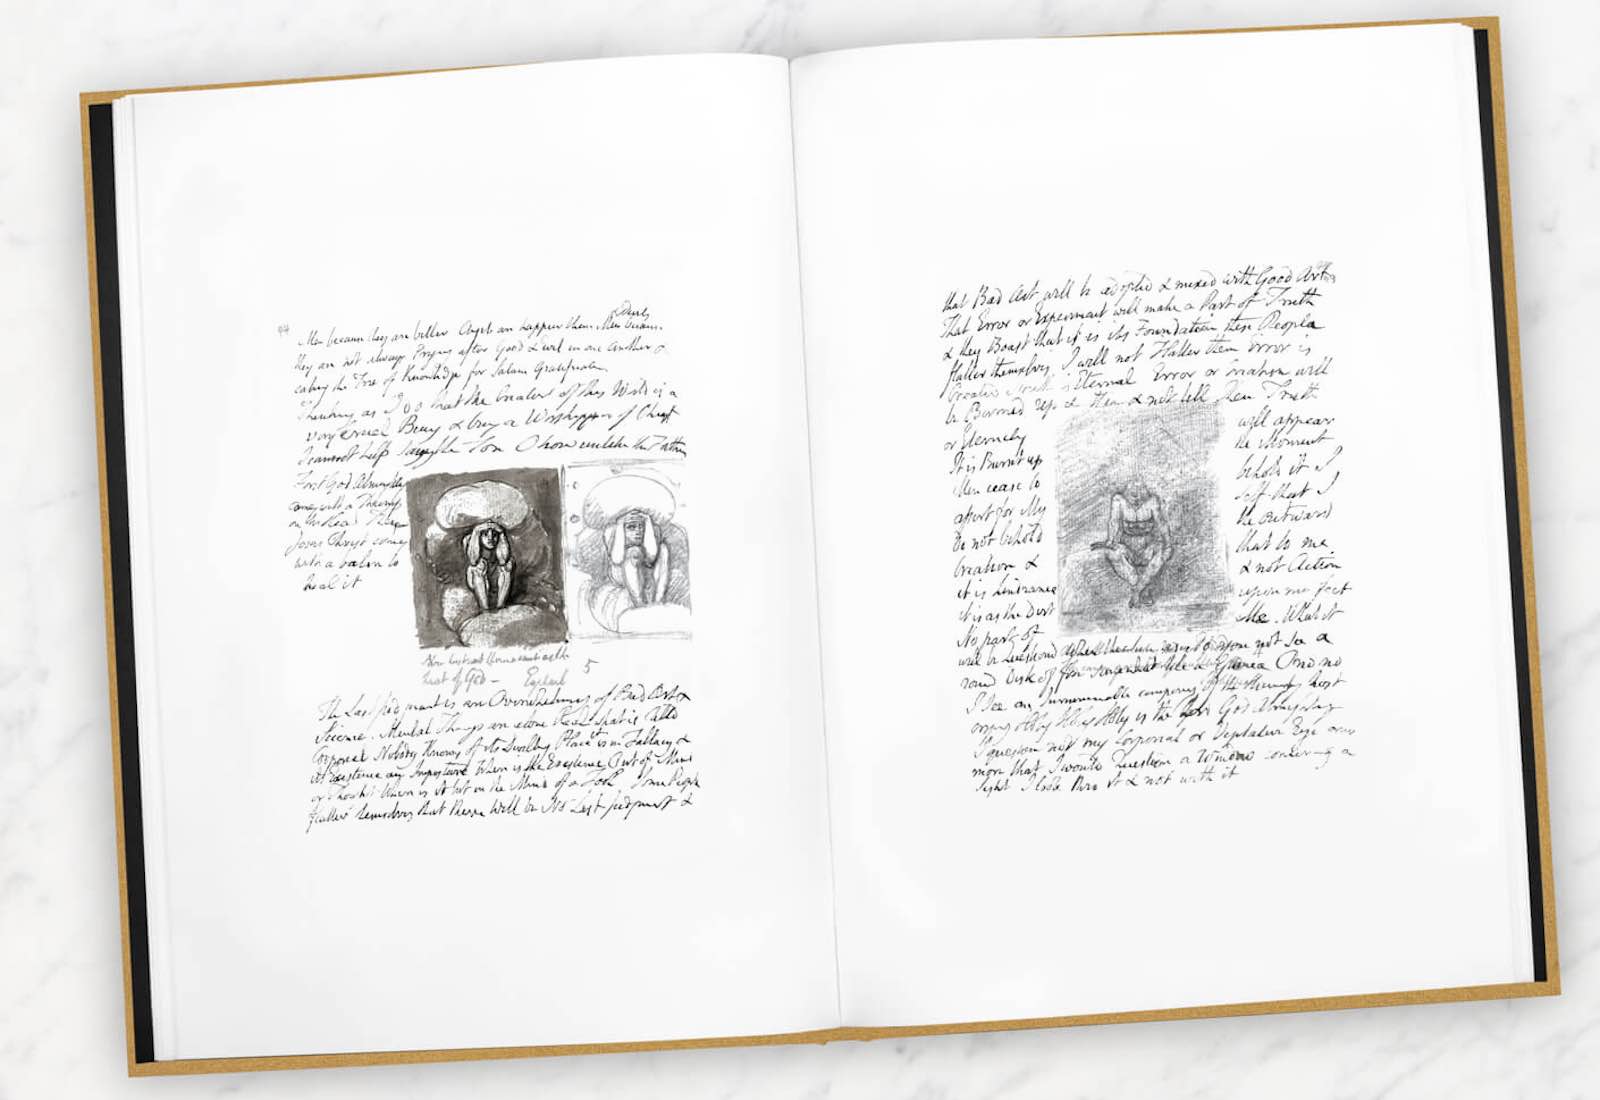 94
Devils
Men because they are better Angels are happier than Men because
they are not always Prying after Good & Evil in one Another &
eating the Tree of Knowledge for Satans Gratification
Thinking as I do that the Creator of this World is a
very Cruel Being & being a Worshipper of Christ
I cannot help saying the Son O how unlike the Father
First God Almighty
comes with a Thump
on the Head Then
Jesus Christ comes
with a balm to
heal it
heart of God
5
The Last Judgment is an Overwhelming of Bad Art &
Science. Mental Things are alone Real what is Calld
Corporeal Nobody Knows of its Dwelling Place it is in Fallacy &
its Existence an Imposture Where is the Existence Out of Mind
or Thought Where is it but in the Mind of a Fool Some People
flatter themselves that there will be No Last Judgment &
that Bad Art will be adopted & mixed with Good Art
That Error or Experiment will make a Part of Truth
& they Boast that it is its Foundation these People
flatter themselves I will not Flatter them Error is
Created Truth is Eternal Error or Creation will
be Burned Up & then & not till then Truth
or Eternity will appear
It is Burnt up the Moment
Men cease to behold it I
assert for My self that I
do not behold the Outward
Creation & that to me
it is hindrance & not Action
it is as the Dirt upon my feet
No part of Me. What it
will be Questiond When the Sun rises do you not see a
round Disk of fire somewhat like a Guinea O no no
I see an Innumerable company of the Heavenly host
crying Holy Holy Holy is the Lord God Almighty
I question not my Corporeal or Vegetative Eye any
more than I would Question a Window concerning a
Sight I look thro it & not with it